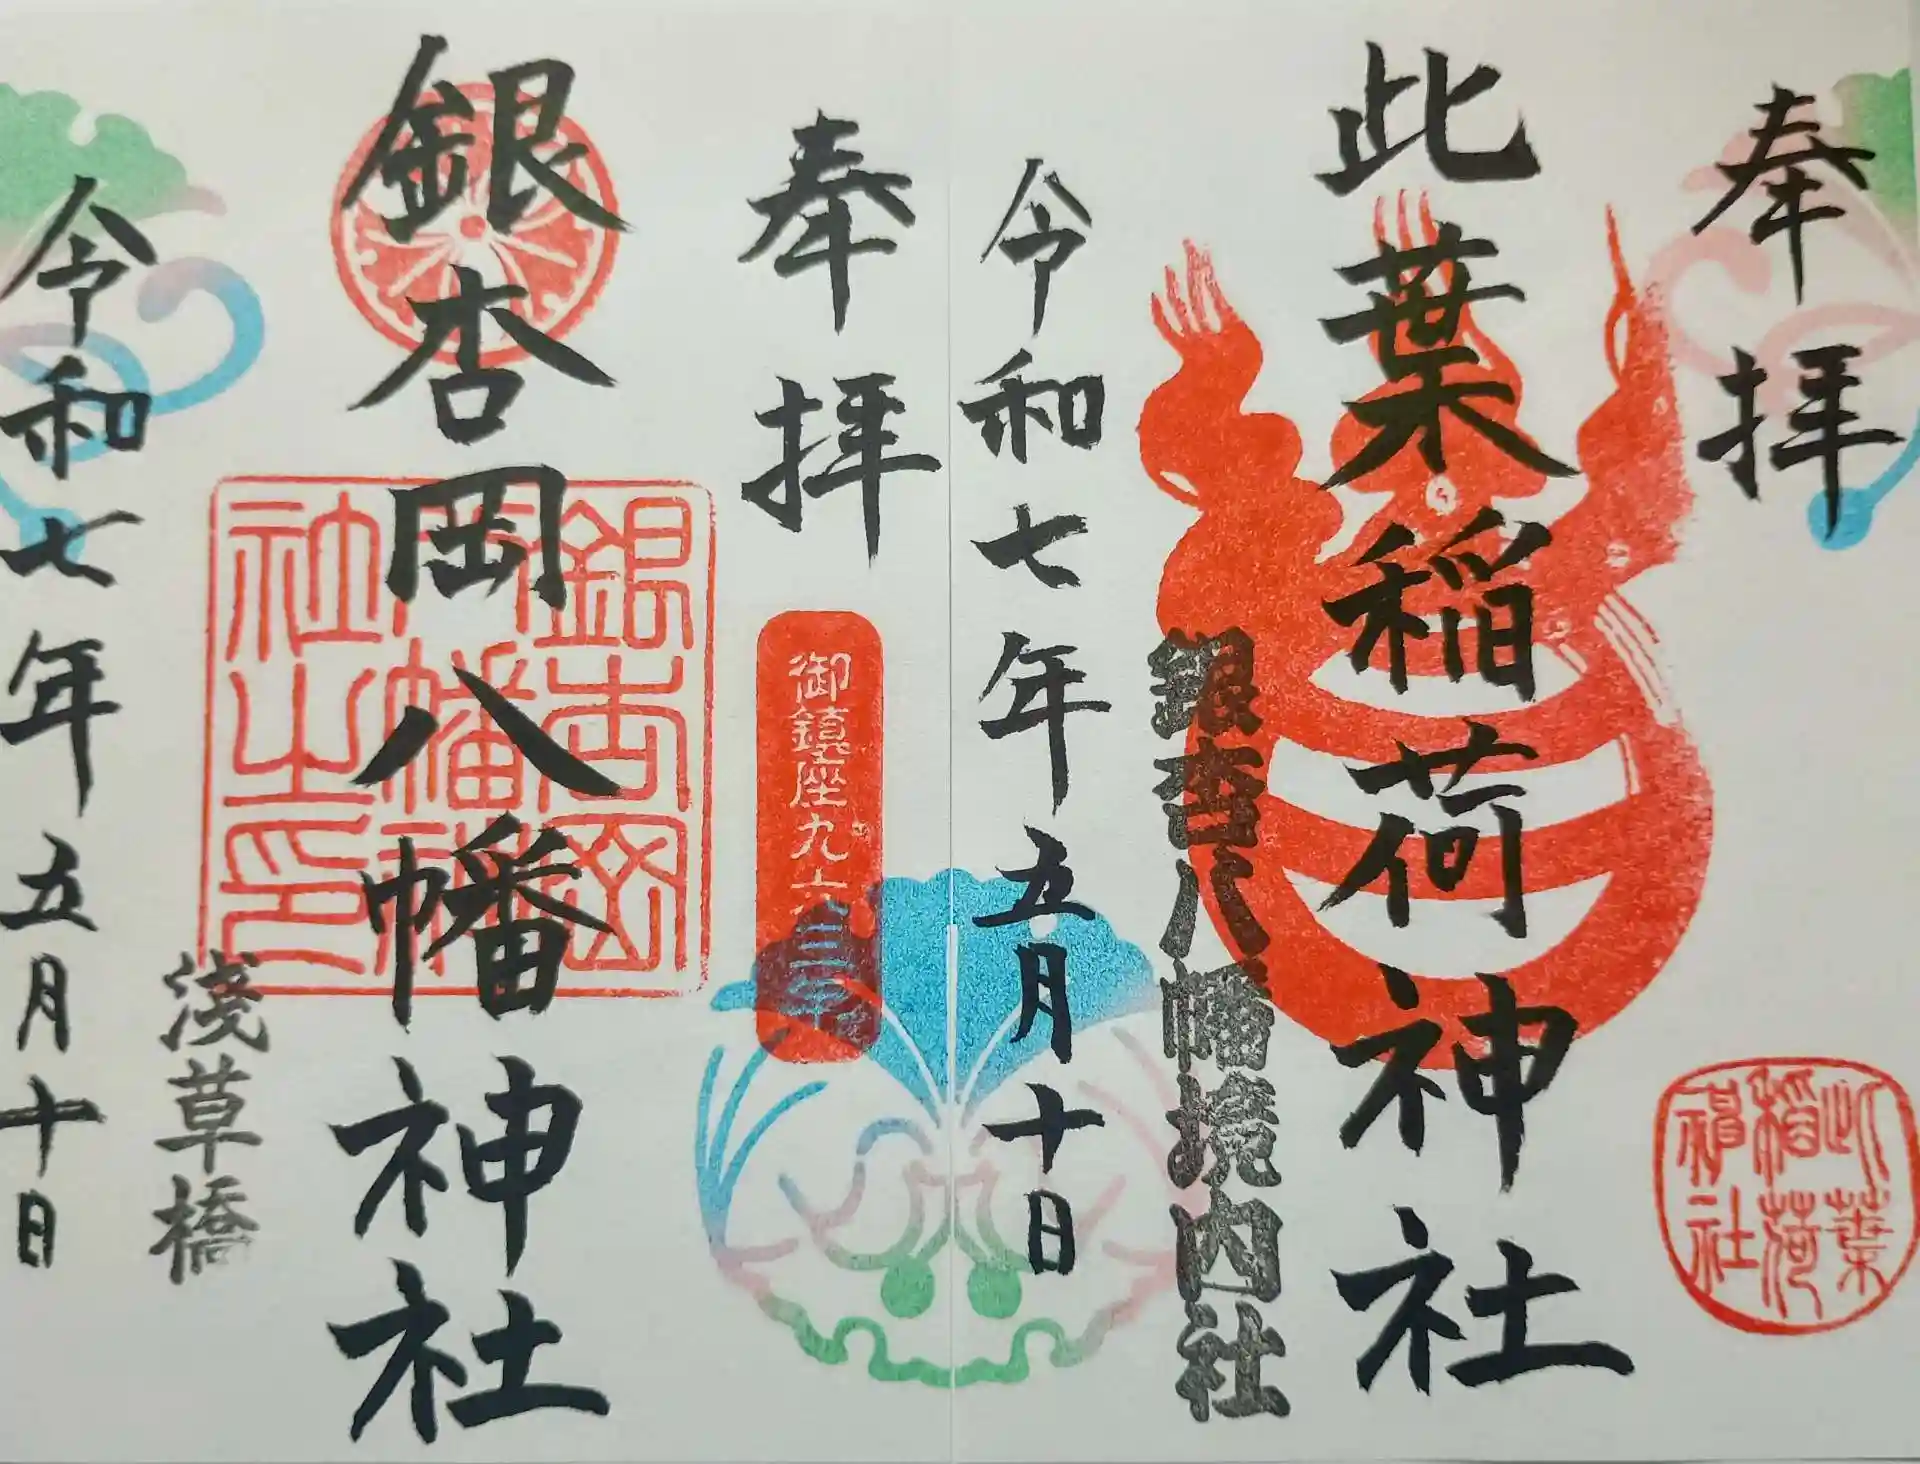 奉拝
此葉稲荷神社
此葉
稲荷
神社
銀杏八幡境内社
令和七年五月十日
奉拝
御鎮座九六三年
銀杏岡八幡神社
銀杏岡
八幡神
社之印
浅草橋
令和七年五月十日